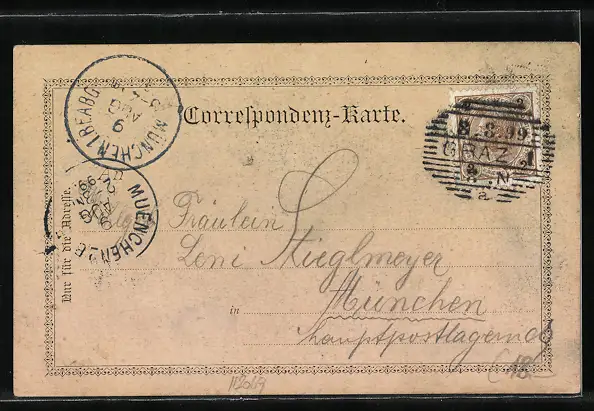 Correspondenz-Karte.
Nur für die Adresse.
MÜNCHEN I BEABG
9
AUG
MUENCHEN 2 B
9
AUG
99
8 8 99
GRAZ 1
N
a
Fräulein
Leni Stieglmeyer
in München
hauptpostlagernd
18